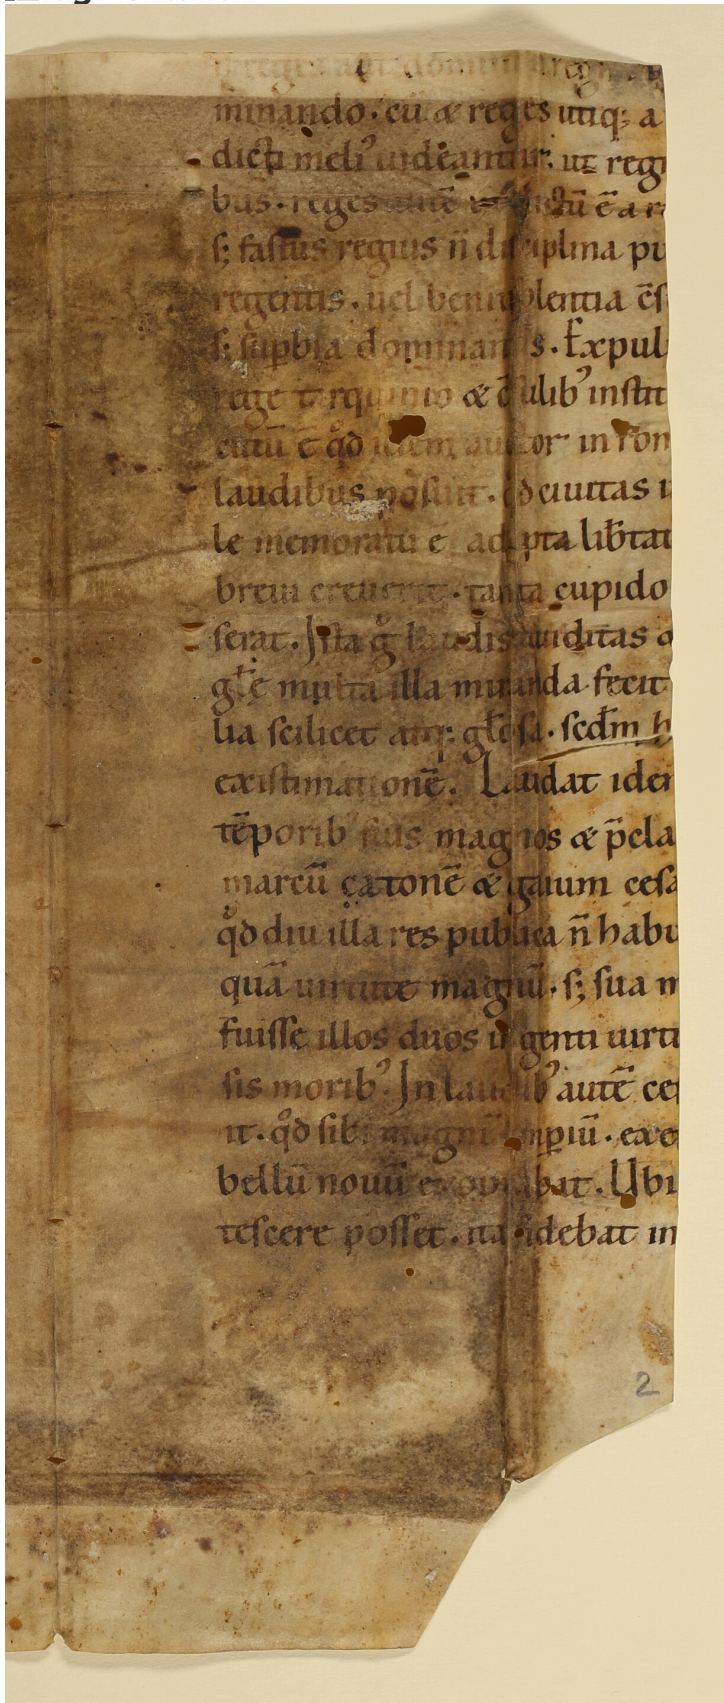 a reges aut domini a reg
minando. cū & reges utiq; a
dicti meli᾽ uideantur. ut regn
bus. reges autē dictū ē a re
s; fastus regius n̄ disciplina pu
regentis. uel beniuolentia c̄s
s; supbia dominantis. Expul
rege tarquinio & c̄sulib᾽ instit
cutū ē qd̊ idem auctor in rom
laudibus posuit. qd̊ ciuitas in
le memoratū ē adepta lib̄tat
breui creuerit. tanta cupido
serat. Ista g̊ laudis auiditas &
gl̄ę multa illa miranda fecit
lia scilicet atq; gl̄osa. scd̄m h
existimationē. Laudat iden
tēporib᾽ suis magnos & p̄cla
marcū catonē & gaium cesa
qd̊ diu illa res publica n̄ habu
quā uirtute magnū. s; sua m
fuisse illos duos ingenti uirtu
sis morib᾽. In laudib᾽ autē ce
it. qd̊ sibi magnū impiū. exe
bellū nouū exoptabat. Ubi
tescere posset. ita fidebat in
2